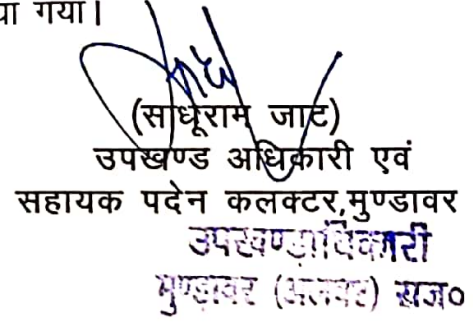 या गया।
(साधूराम जाट)
उपखण्ड अधिकारी एवं
सहायक पदेन कलक्टर,मुण्डावर
उपखण्डाधिकारी
मुण्डावर (अलवर) राज०